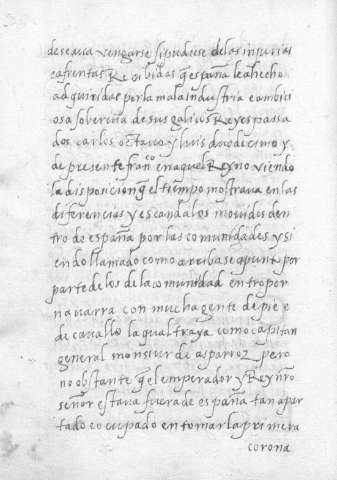 deseava vengarse si pudiese de las injurias
e afrentas Recibidas q̃ españa le a hecho
adquiridas por la mala industria e ambici
osa soberuia de sus galicos Reyes passa
dos carlos octavo y luis duodecimo y
de presente fran^co en aquel Reyno viendo
la disposicion q̃ el tiempo mostrava en las
diferencias y escandalos movidos den
tro de españa por las comunidades y si
endo llamado como arriba se apunto por
parte de los de la comunidad entro por
navarra con mucha gente de pie e
de cavallo la qual traya como capitan
general monsiur de asparroz pero
no obstante q̃ el emperador y Rey nr̃o
señor estava fuera de españa tan apar
tado e ocupado en tomar la primera
corona